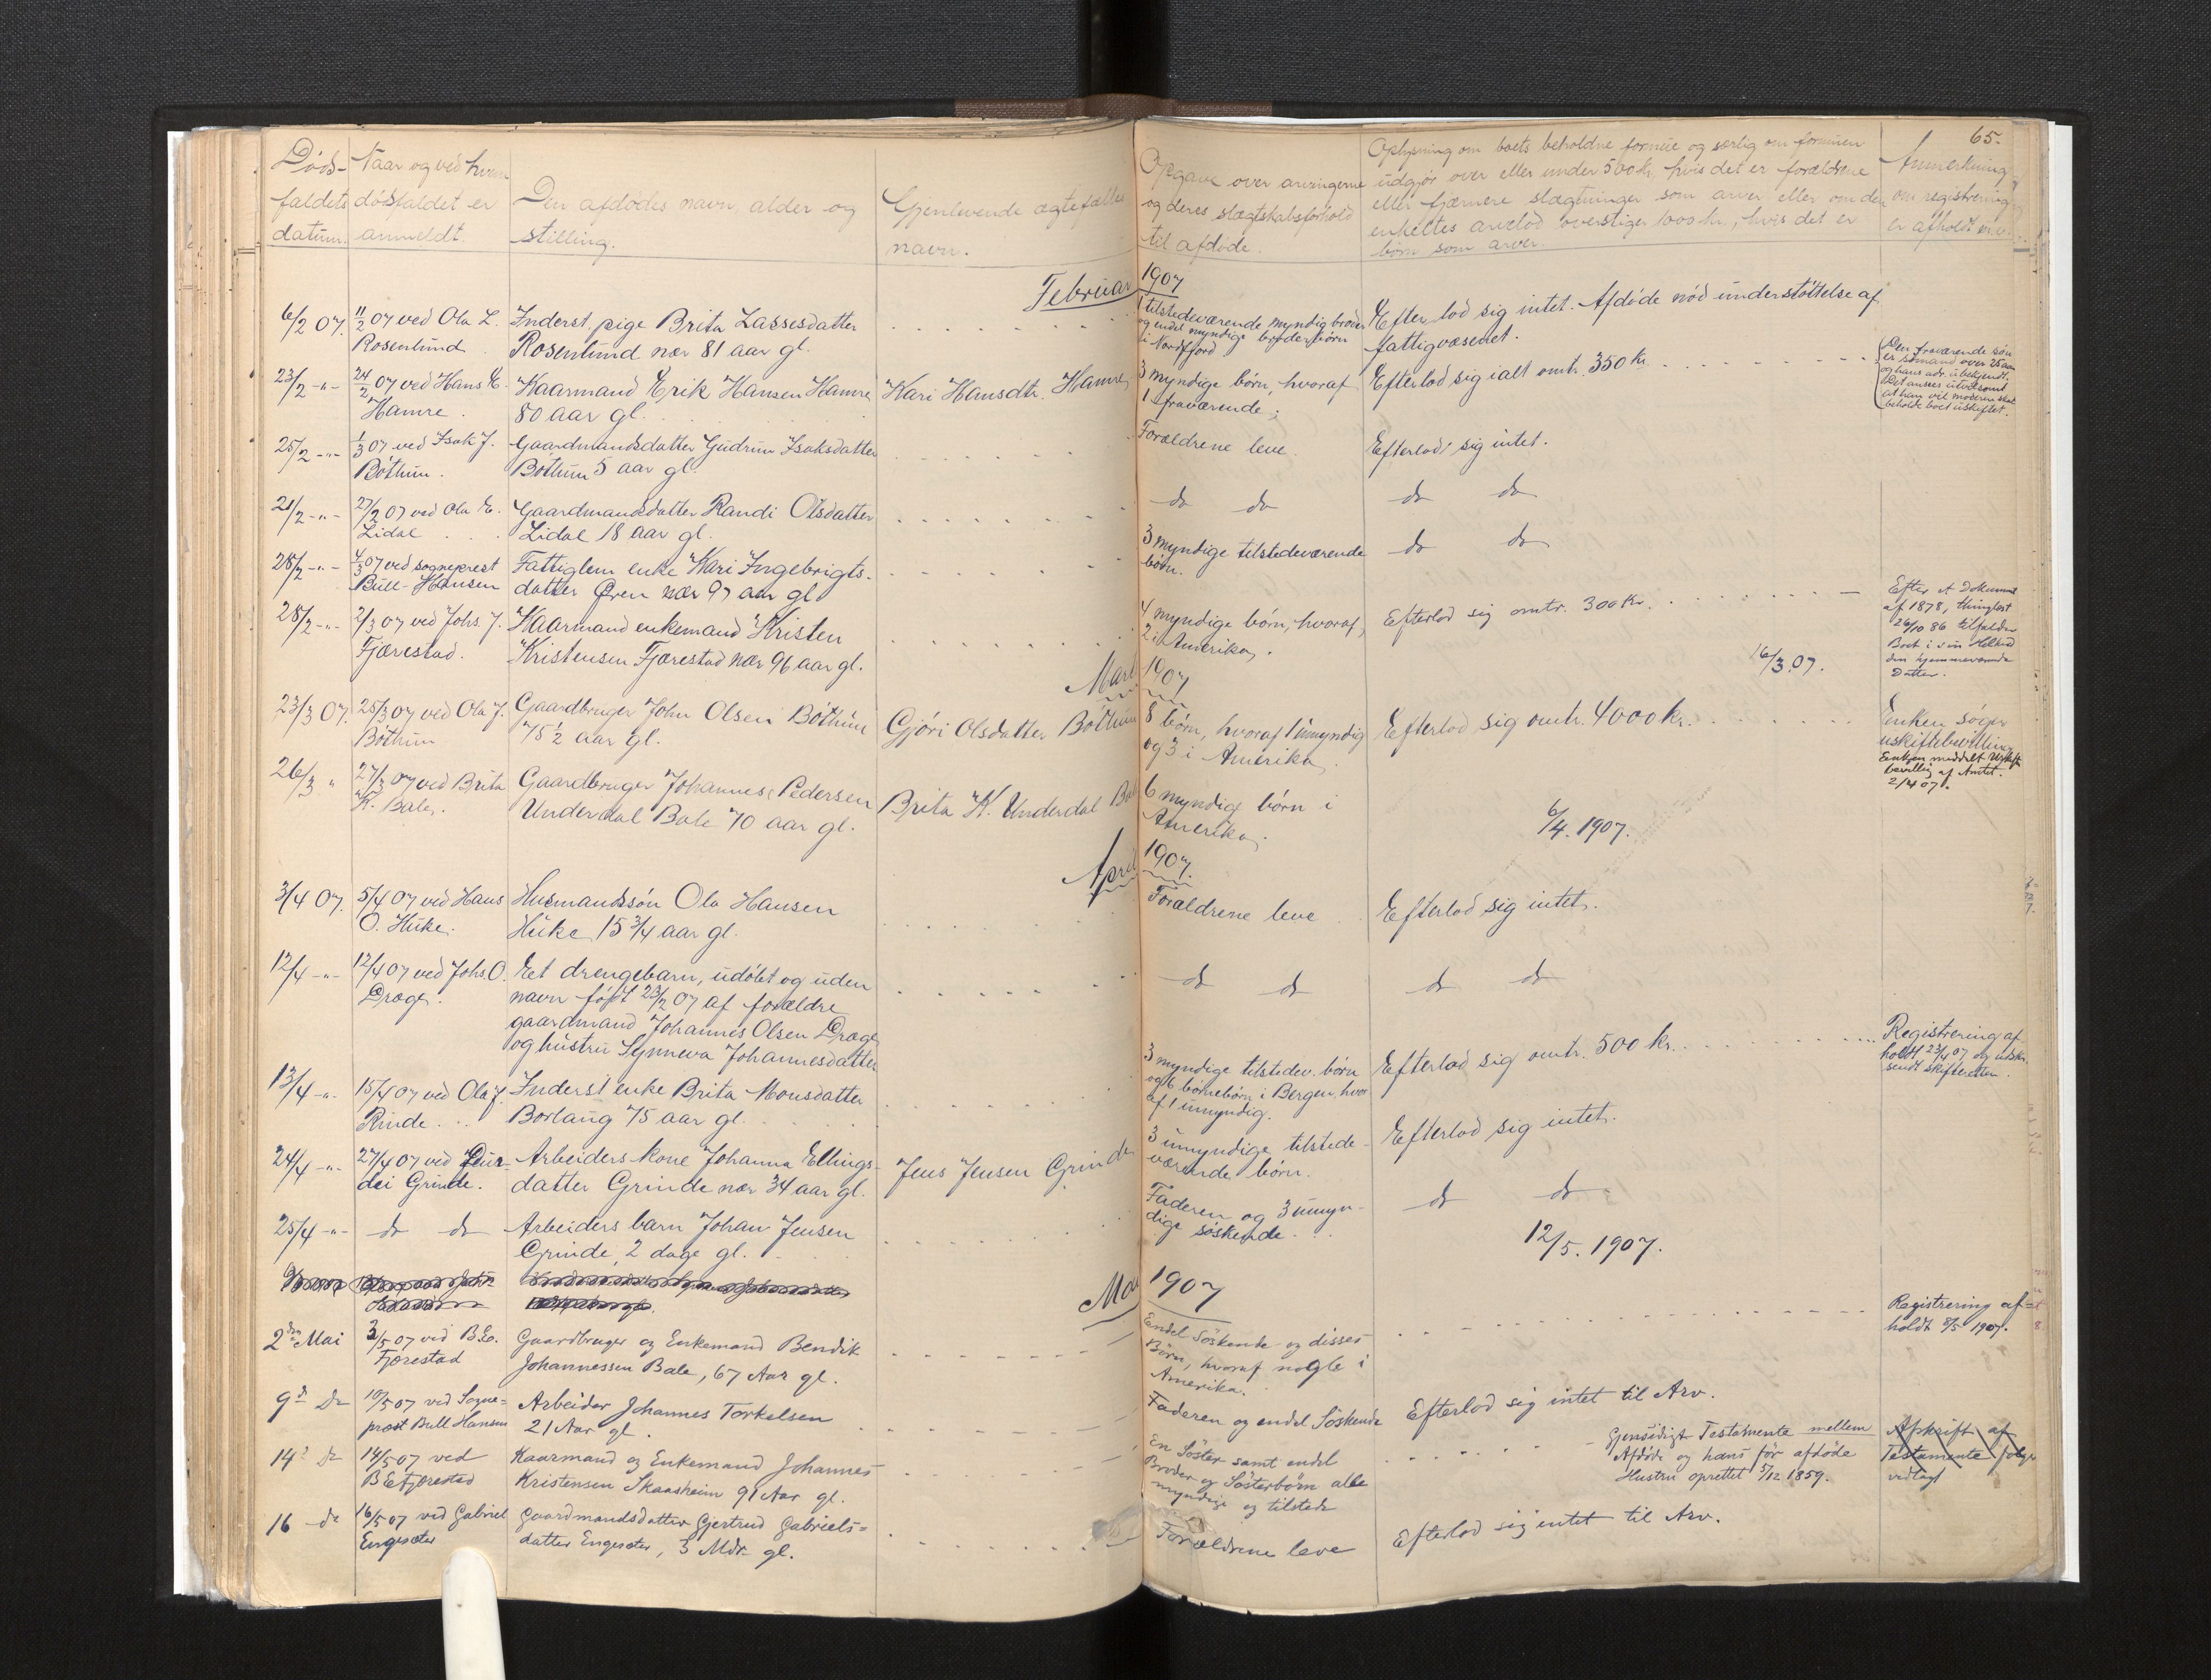 65.
Døds-
faldets
datum.
Naar og ved hvem
dødsfaldet er
anmeldt.
Den afdødes navn, alder og
stilling.
Gjenlevende ægtefælles
navn.
Opgave over arvingerne
og deres slægtskabsforhold
til afdøde.
Oplysning om boets beholdne formue og særlig om formuen
udgjør over eller under 500 kr, hvis det er forældrene
eller fjærnere slægtninger som arver eller om den
enkeltes arvelod overstiger 1000 kr., hvis det er
børn som arver.
Anmerkning
om registrering
er afholdt m.v.
Februar 1907
6/2 07.
11/2 07 ved Ola L.
Rosenlund
Inderst. pige Brita Lassesdatter
Rosenlund nær 81 aar gl.
1 tilstedeværende myndig broder
og endel myndige broderbørn
i Nordfjord
Efterlod sig intet. Afdøde nød understøttelse af
fattigvæsenet.
23/2 -"-
24/2 07 ved Hans E.
Hamre.
Kaarmand Erik Hansen Hamre
80 aar gl.
Kari Hansdtr. Hamre
3 myndige børn, hvoraf
1 fraværende;
Efterlod sig ialt omtr. 350 kr.
Den fraværende søn
er sømand over 25 aar
og hans adr. ubekjendt.
Det ansees utvilsomt
at han vil moderen skal
beholde boet uskiftet.
25/2 -"-
1/3 07 ved Isak J.
Bøthun.
Gaardmandsdatter Gudrun Isaksdatter
Bøthun 5 aar gl.
Forældrene leve.
Efterlod sig intet.
21/2 -"-
27/2 07 ved Ola E.
Lidal
Gaardmandsdatter Randi Olsdatter
Lidal 18 aar gl.
do do
do do
28/2 -"-
4/3 07 ved sogneprest
Bull-Hansen
Fattiglem enke Kari Ingebrigts-
datter Øren nær 97 aar gl.
3 myndige tilstedeværende
børn.
do do
28/2 -"-
2/3 07 ved Johs. J.
Fjærestad.
Kaarmand enkemand Kristen
Kristensen Fjærestad nær 96 aar gl.
4 myndige børn, hvoraf
2 i Amerika.
Efterlod sig omtr. 300 kr.
Efter et Dokument
af 1878, thinglæst
26/10 86 tilfalder
Boet i sin Helhed
den hjemmeværende
Datter.
16/3.07.
Mars 1907
23/3 07.
25/3 07 ved Ola J.
Bøthun
Gaardbruger John Olsen Bøthun
75 1/2 aar gl.
Gjøri Olsdatter Bøthun
8 børn, hvoraf 1 umyndig
og 3 i Amerika.
Efterlod sig omtr. 4000 kr.
Enken søger
uskiftebevilling
Enken meddelt Uskifte
bevilling af Amtet.
2/4 07.
26/3 "
27/3 07 ved Brita
K. Bale.
Gaardbruger Johannes Pedersen
Underdal Bale 70 aar gl.
Brita K. Underdal Bale
6 myndige børn i
Amerika.
6/4. 1907.
April 1907.
3/4 07.
5/4 07 ved Hans
O. Huke.
Husmandssøn Ola Hansen
Huke 15 3/4 aar gl.
Forældrene leve
Efterlod sig intet.
12/4 -"-
12/4 07 ved Johs O.
Dræge.
Et drengebarn, udøbt og uden
navn født 23/2 07 af forældre
gaardmand Johannes Olsen Dræge
og hustru Synneva Johannesdatter
do do
do do
13/4 -"-
15/4 07 ved Ola J.
Rinde.
Inderst enke Brita Monsdatter
Borlaug 75 aar gl.
3 myndige tilstedev. børn
og 6 børnebørn i Bergen, hvor
af 1 umyndig.
Efterlod sig omtr. 500 kr.
Registrering af
holdt 23/4 07 og udskr.
sendt skifteretten.
24/4 -"-
27/4 07 ved Gur-
dei Grinde.
Arbeiders kone Johanna Ellings-
datter Grinde nær 34 aar gl.
Jens Jensen Grinde
3 umyndige tilstede-
værende børn.
Efterlod sig intet.
25/4 -"-
do do
Arbeiders barn Johan Jensen
Grinde 2 dage gl.
Faderen og 3 umyn-
dige søskende.
do do
12/5. 1907.
Mai 1907
2den Mai
3/5 07 ved B.E.
Fjærestad
Gaardbruger og Enkemand Bendik
Johannessen Bale, 67 Aar gl.
Endel Søskende og disses
Børn, hvoraf nogle i
Amerika.
Registrering af=
holdt 8/5 1907.
9de do
10/5 07 ved Sogne=
prest Bull Hansen
Arbeider Johannes Torkelsen
21 Aar gl.
Faderen og endel Søskende
Efterlod sig intet til Arv.
14de do
14/5 07 ved
B E Fjærestad
Kaarmand og Enkemand Johannes
Kristensen Skaasheim 91 Aar gl.
En Søster samt endel
Broder og Søsterbørn alle
myndige og tilstede
Gjensidigt Testamente mellem
Afdøde og hans før afdøde
Hustru oprettet 5/12 1859.
Afskrift af
Testamente følger
vedlagt
16 do
16/5 07 ved Gabriel
Engesæter
Gaardmandsdatter Gjertrud Gabriels=
datter Engesæter, 3 Mdr gl.
Forældrene leve
Efterlod sig intet til Arv.